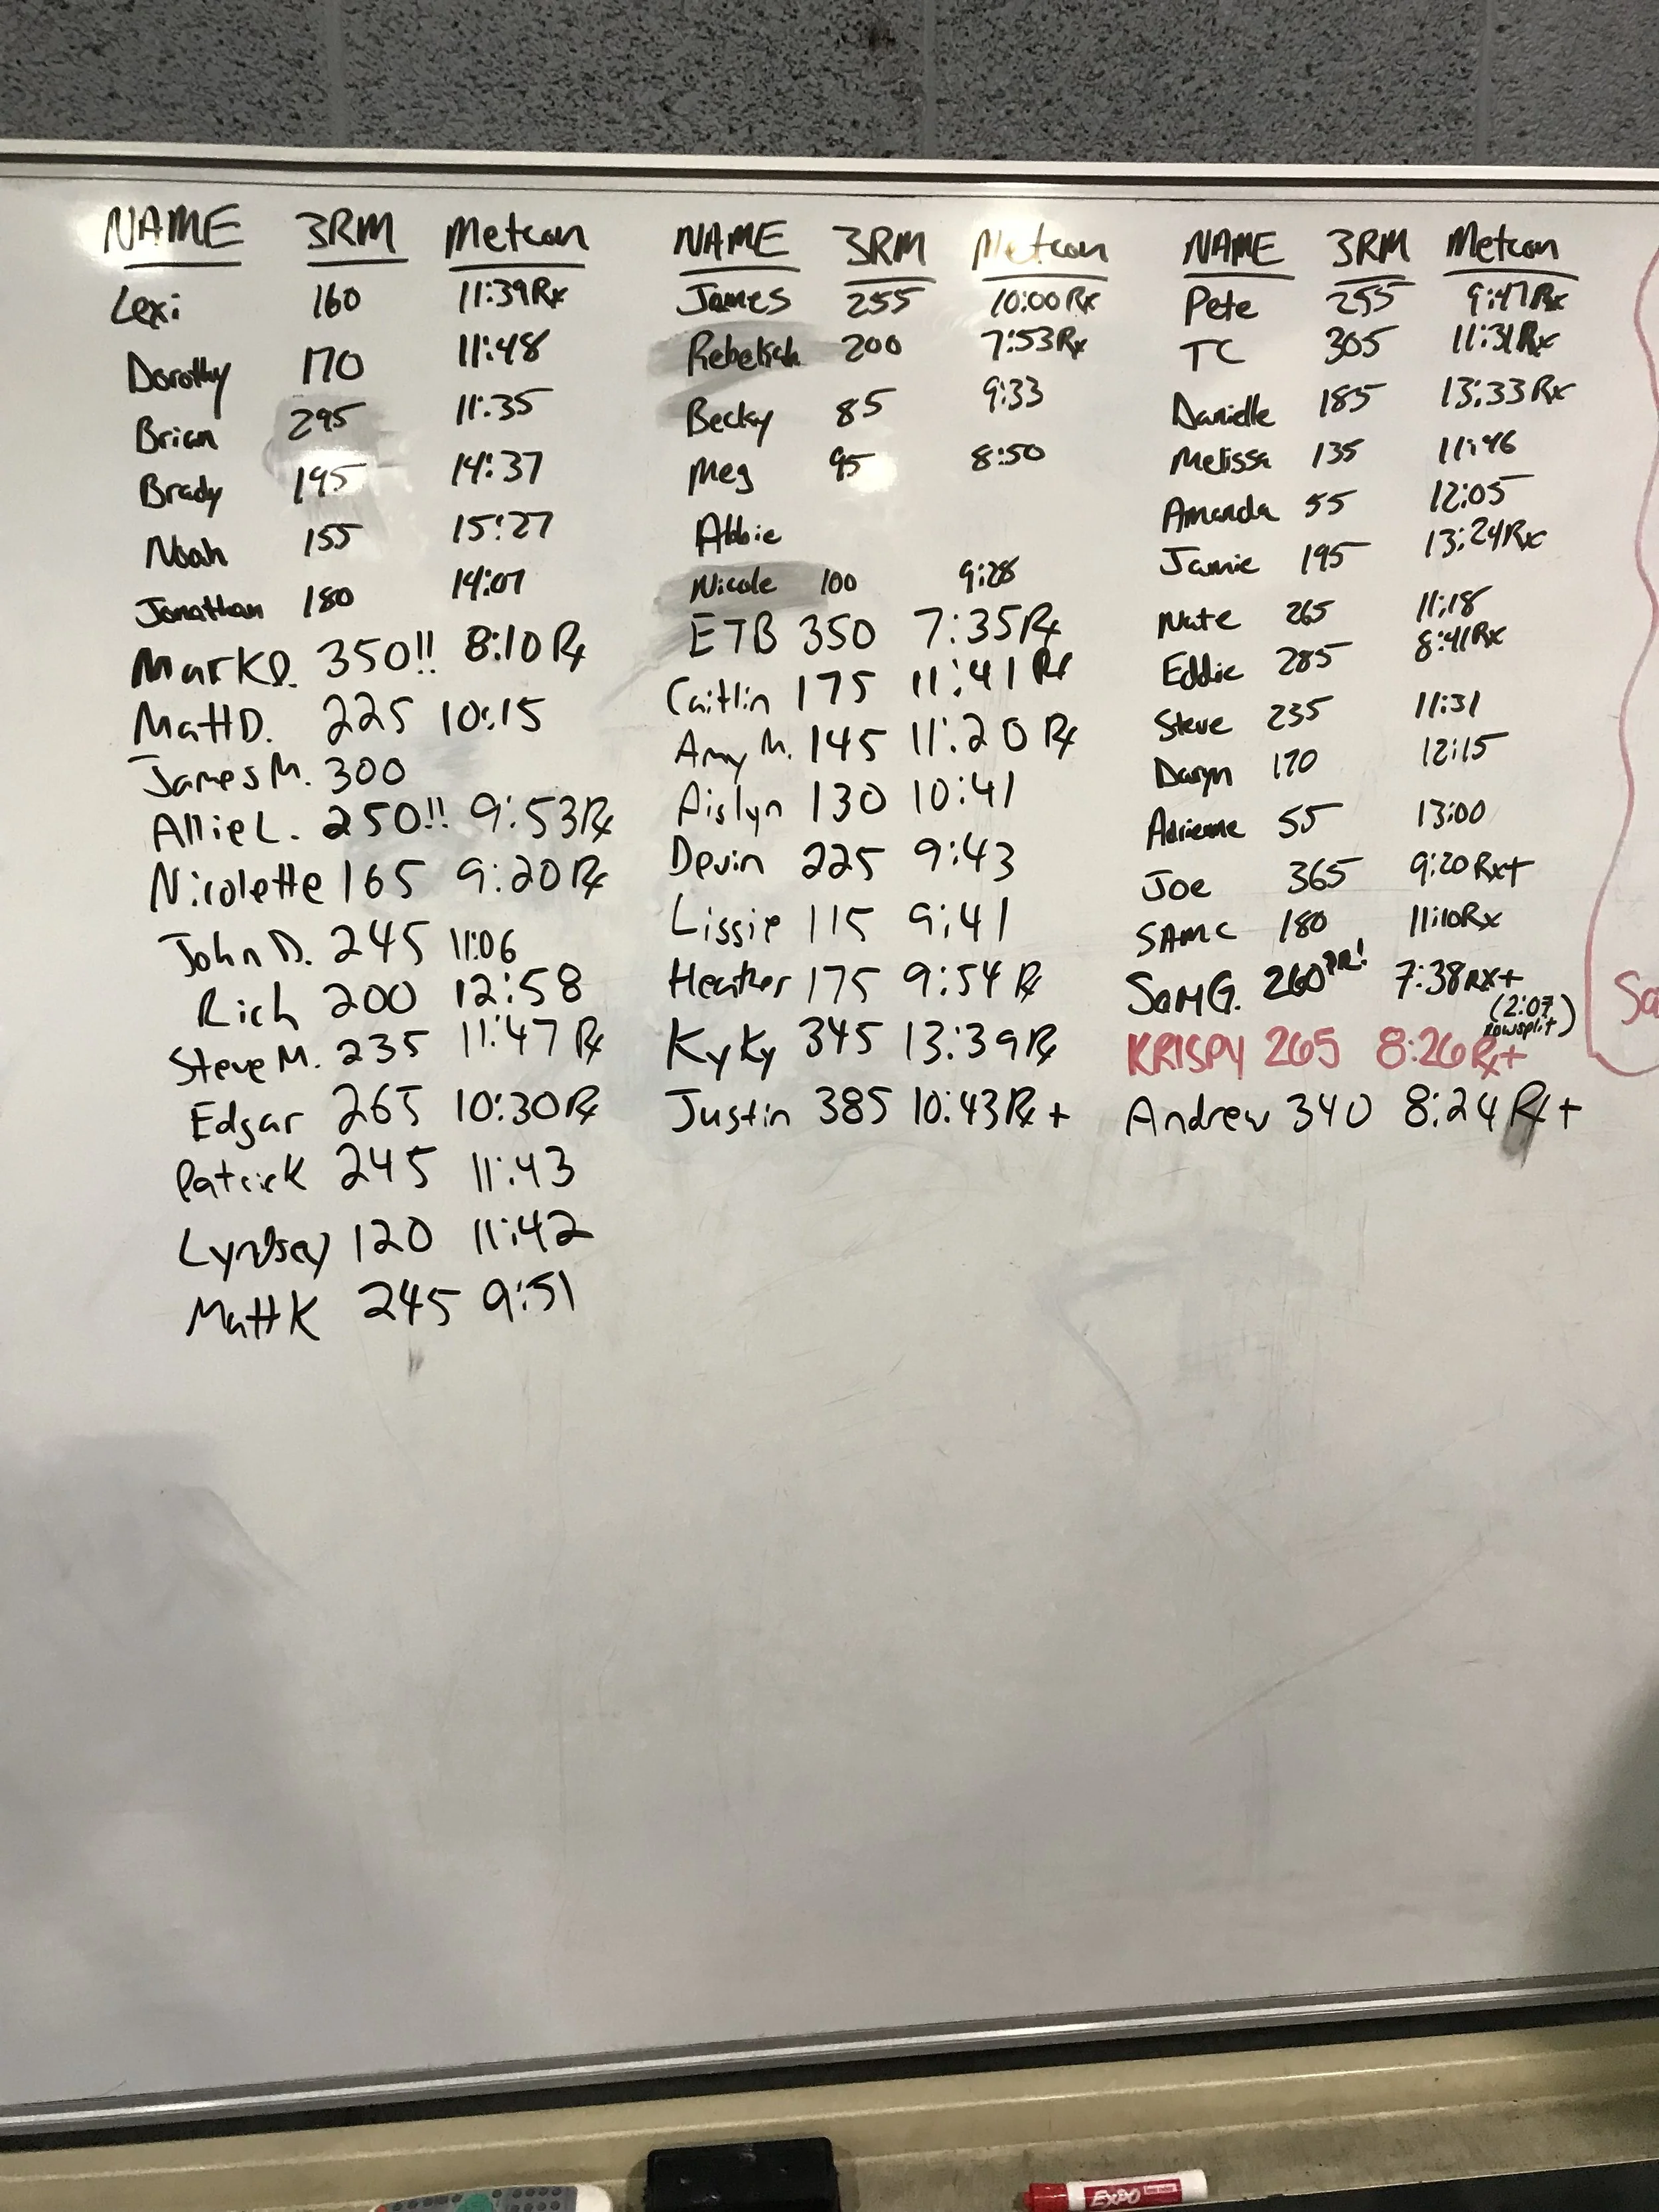 NAME 3RM Metcon
Lexi 160 11:39 Rx
Dorothy 170 11:48
Brian 295 11:35
Brady 195 14:37
Noah 155 15:27
Jonathan 180 14:07
Mark D. 350!! 8:10 Rx
Matt D. 225 10:15
James M. 300
Allie L. 250!! 9:53 Rx
Nicolette 165 9:20 Rx
John D. 245 11:06
Rich 200 12:58
Steve M. 235 11:47 Rx
Edgar 265 10:30 Rx
Patrick 245 11:43
Lyndsey 120 11:42
Matt K 245 9:51
NAME 3RM Metcon
James 255 10:00 Rx
Rebekah 200 7:53 Rx
Becky 85 9:33
Meg 95 8:50
Abbie
Nicole 100 9:28
ETB 350 7:35 Rx
Caitlin 175 11:41 Rx
Amy M. 145 11:20 Rx
Aislyn 130 10:41
Devin 225 9:43
Lissie 115 9:41
Heather 175 9:54 Rx
KyKy 345 13:39 Rx
Justin 385 10:43 Rx +
NAME 3RM Metcon
Pete 255 9:47 Rx
TC 305 11:31 Rx
Danielle 185 13:33 Rx
Melissa 135 11:46
Amanda 55 12:05
Jamie 195 13:24 Rx
Nate 265 11:18
Eddie 285 8:41 Rx
Steve 235 11:31
Daryn 170 12:15
Adrienne 55 13:00
Joe 365 9:20 Rx+
SAM C 180 11:10 Rx
SAM G. 260 PR! 7:38 RX+
(2:07
row split)
KRISPY 265 8:26 Rx+
Andrew 340 8:24 Rx +
EXPO